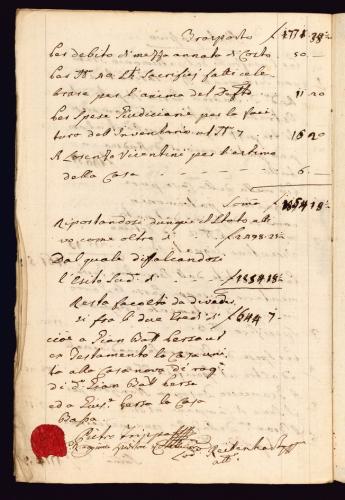 Trasporto f 1771 38
per debito di mezza annata di Costo 50 —
per No. 40 S. Sacrificj fatti cele-
brare per l'anima del Deffto 11 20
per Spese Giudiciarie per la fat-
tura dell'Inventario al N. 7 16 20
A Lorenzo Vicentini per l'estimo
della Casa - - - - - - 6 —
Soma f 1854 18
Riportandosi dunque il Stato atti-
vo come oltre di f 2498 25
Dal quale difalcandosi
l'Esito Sud. di f 1854 18
Resta facoltà da divider-
si fra li due Eredi di f 644 7
cioè a Gian Batt
ex Testamento la Casa uni-
to alla Casa nova di rag.
di d. Gian Batt
ed a la Casa
Bassa
Pietro